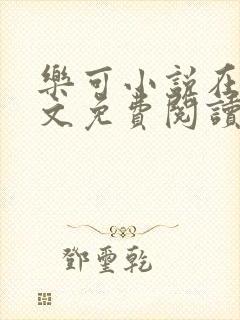 樂可小說在
文免費閱讀
鄧璽乾